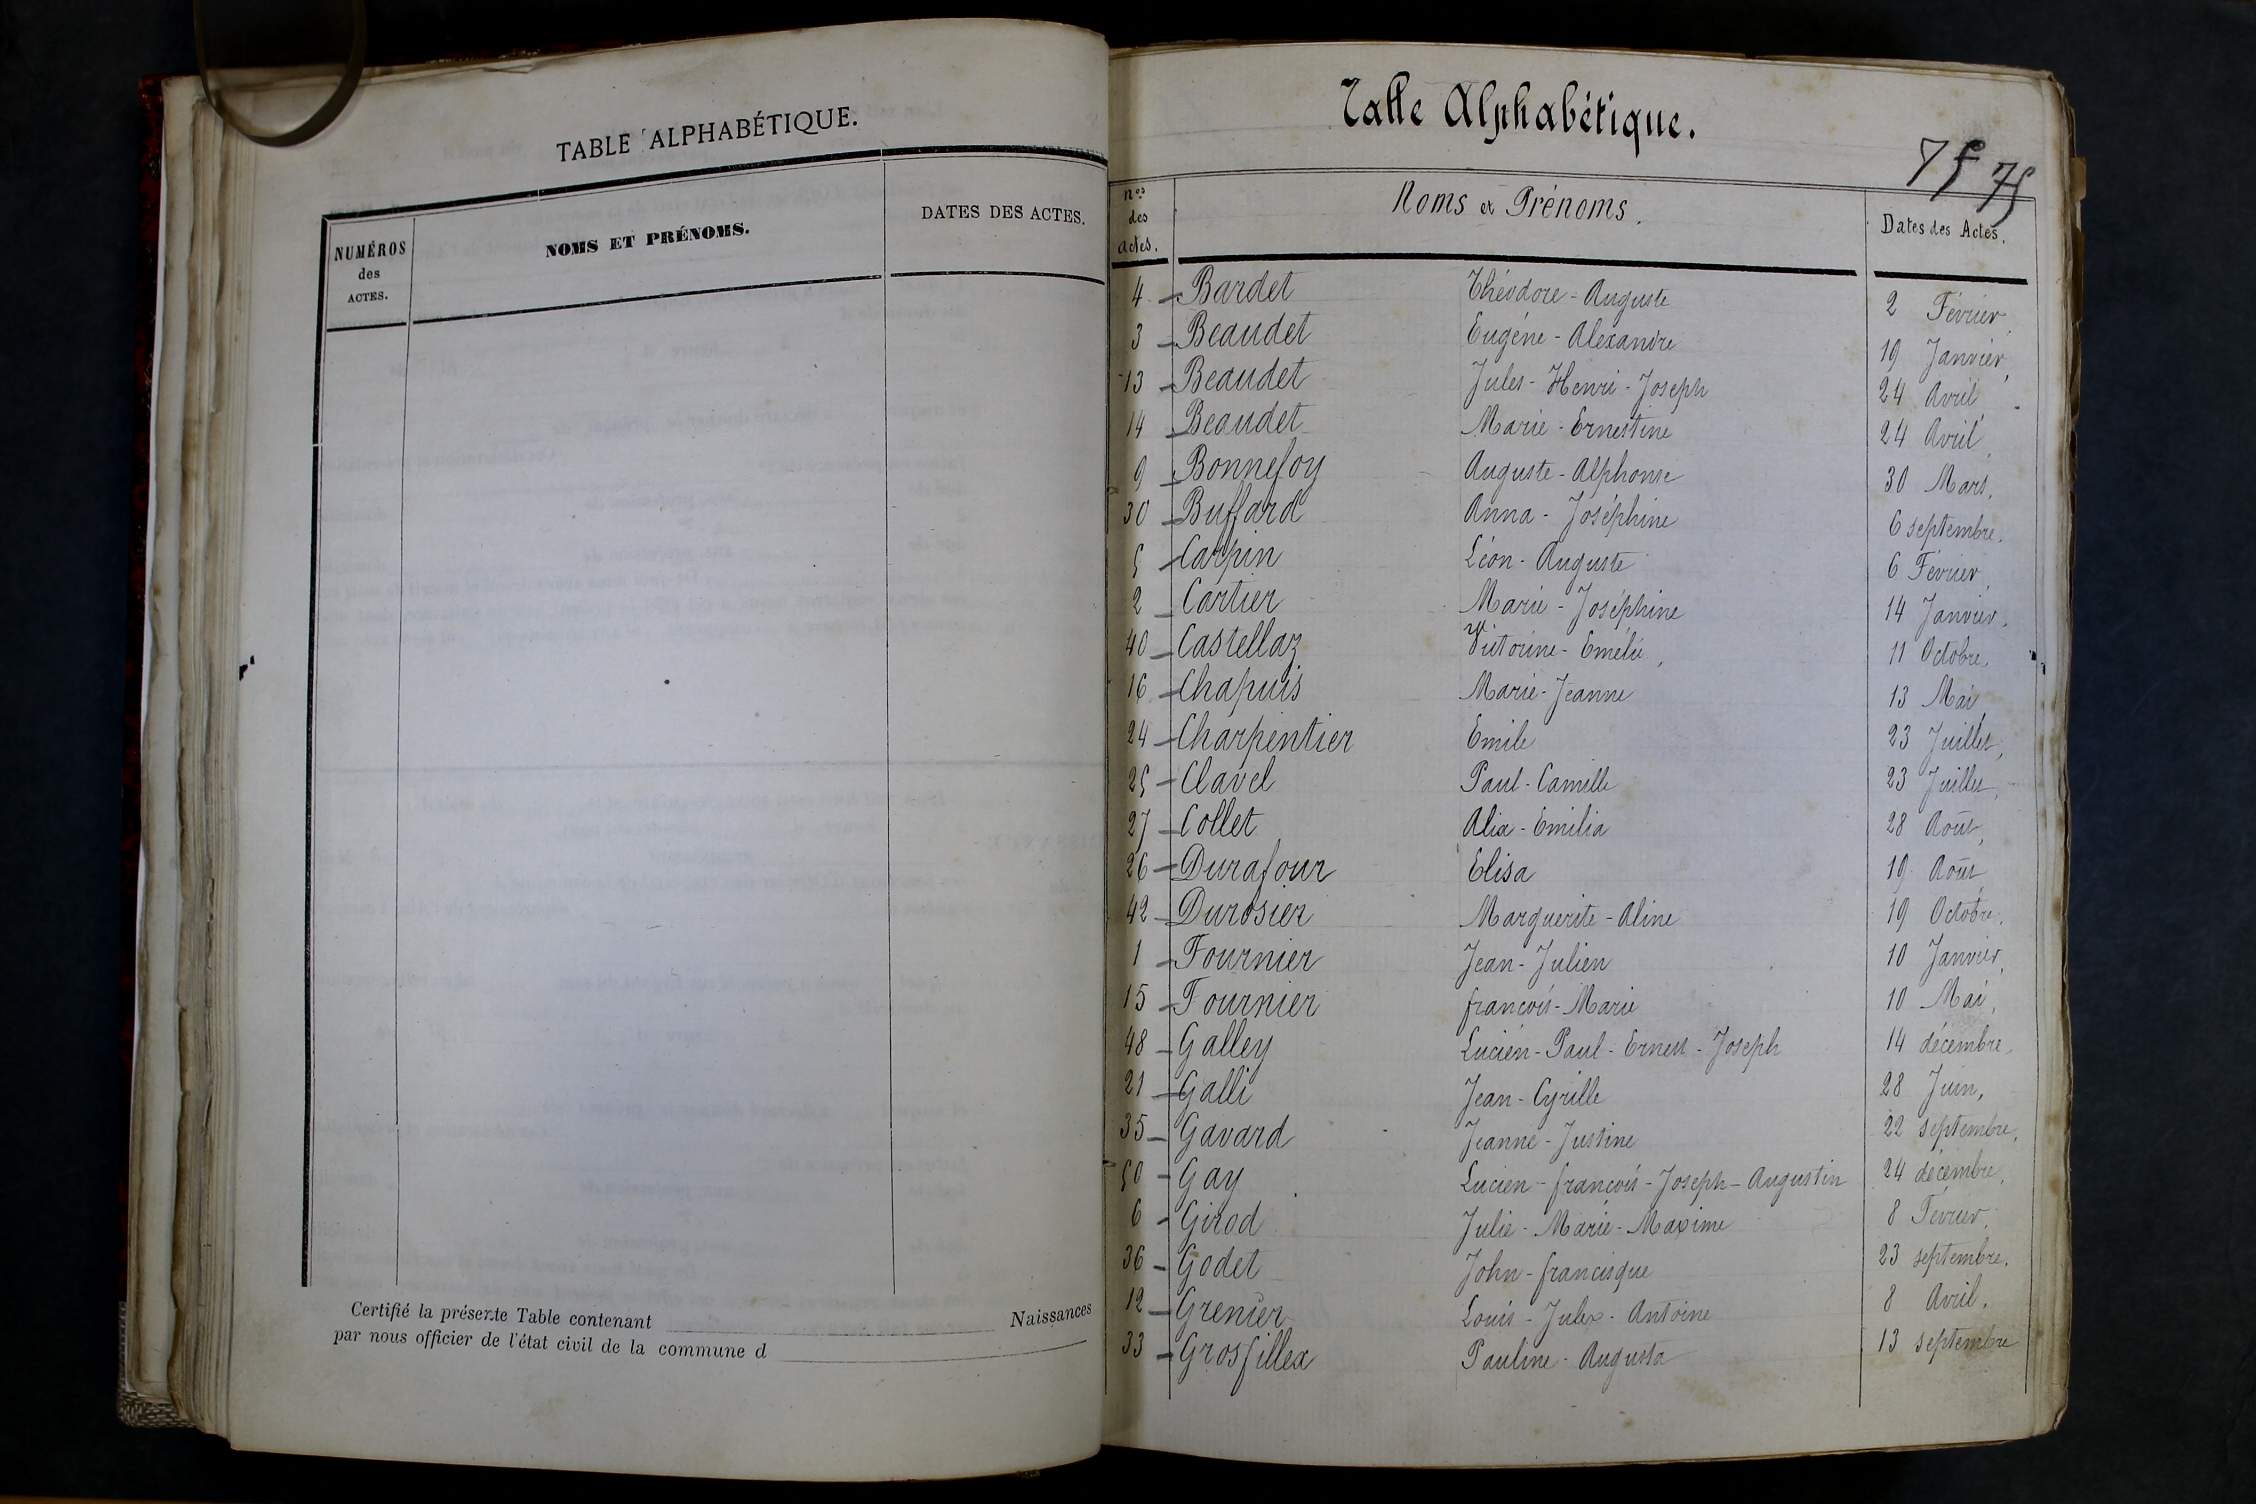 TABLE ALPHABÉTIQUE.
NUMÉROS des ACTES.
NOMS ET PRÉNOMS.
DATES DES ACTES.
Certifié la présente Table contenant Naissances
par nous officier de l'état civil de la commune d
Table Alphabétique.
75 75
Nos des actes.
Noms et Prénoms.
Dates des Actes.
4 - Bardet Théodore - Auguste 2 Février,
3 - Beaudet Eugéne - Alexandre 19 Janvier,
13 - Beaudet Jules - Henri - Joseph 24 Avril,
14 - Beaudet Marie - Ernestine 24 Avril,
9 - Bonnefoy Auguste - Alphonse 30 Mars,
30 - Buffard Anna - Joséphine 6 septembre,
5 - Carpin Léon - Auguste 6 Février,
2 - Cartier Marie - Joséphine 14 Janvier,
40 - Castellaz Victorine - Emélie, 11 Octobre,
16 - Chapuis Marie - Jeanne 13 Mai
24 - Charpentier Emile 23 Juillet,
25 - Clavel Paul - Camille 23 Juillet,
27 - Collet Alix - Emilia 28 Août,
26 - Durafour Elisa 19 Août
42 - Durosier Marguerite - Aline 19 Octobre,
1 - Fournier Jean - Julien 10 Janvier,
15 - Fournier françois - Marie 10 Mai,
48 - Galley Lucien - Paul - Ernest - Joseph 14 décembre,
21 - Galli Jean - Cyrille 28 Juin,
35 - Gavard Jeanne - Justine 22 septembre,
50 - Gay Lucien - françois - Joseph - Augustin 24 décembre,
6 - Girod Julie - Marie - Maxime 8 Février,
36 - Godet John - francisque 23 septembre,
12 - Grenier Louis - Jules - Antoine 8 Avril,
33 - Grosfillex Pauline - Augusta 13 septembre